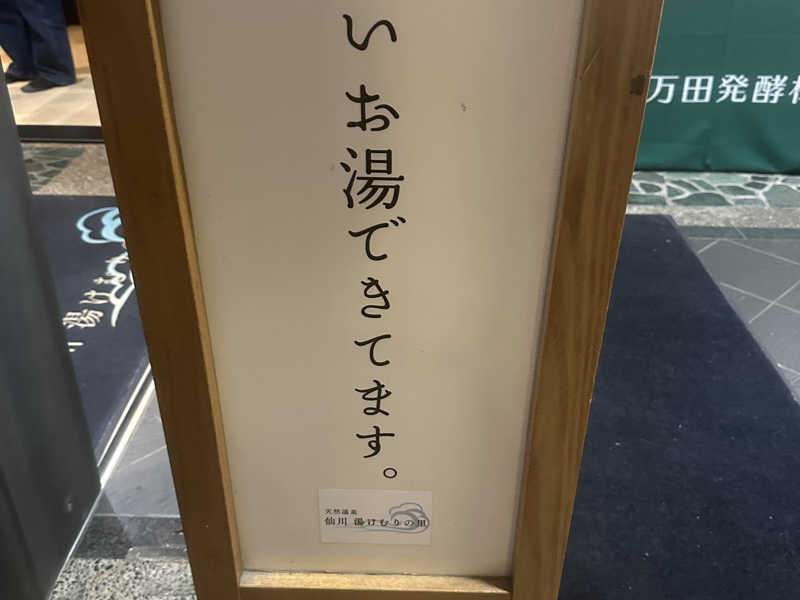 い お湯できてます。
天然温泉
仙川 湯けむりの里
万田発酵
湯けむ